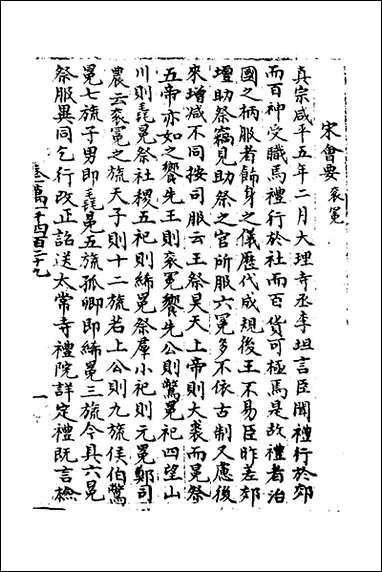 宋會要 袞冕
真宗咸平五年二月大理寺丞李坦言臣聞禮行於郊
而百神受職焉禮行於社而百貨可極焉是故禮者治
國之柄服者飾身之儀歷代成規後王不易臣昨差郊
壇助祭竊見助祭之官所服六冕多不依古制又慮後
來增減不同按司服云王祭昊天上帝則大裘而冕祭
五帝亦如之饗先王則袞冕饗先公則鷩冕祀四望山
川則毳冕祭社稷五祀則絺冕祭羣小祀則元冕鄭司
農云袞冕之旒天子則十二旒若上公則九旒侯伯鷩
冕七旒子男即毳冕五旒孤卿即絺冕三旒今具六冕
祭服異同乞行改正詔送太常寺禮院詳定禮既言檢
卷一萬一千四百二十九
一